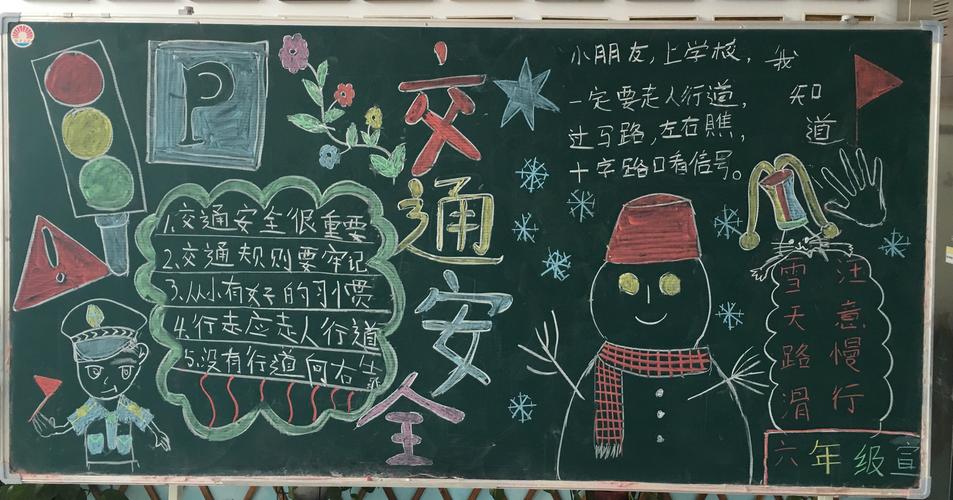 P
交通安全
1.交通安全很重要
2.交通规则要牢记
3.从小有好的习惯
4.行走应走人行道
5.没有行道向右靠
小朋友,上学校,
一定要走人行道,
过马路,左右瞧,
十字路口看信号。
我知道
雪天路滑
注意慢行
六年级宣